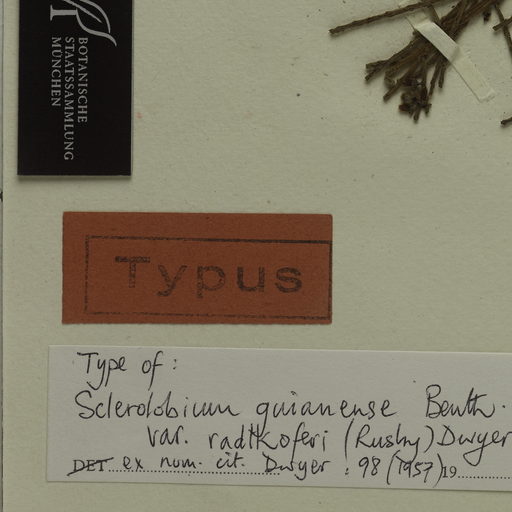 BOTANISCHE
STAATSSAMMLUNG
MÜNCHEN
Typus
Type of:
Sclerolobium guianense Benth.
var. radlkoferi (Rusby) Dwyer
DET. ex num. cit. Dwyer : 98 (1957) 19